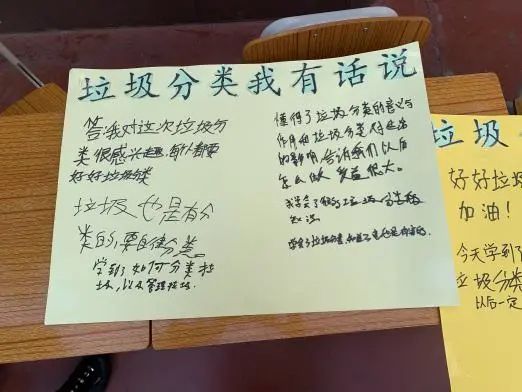 垃圾分类我有话说
答:我对这次垃圾分
类很感兴趣,每个都要
好好垃圾分类
垃圾也是有分
类的,要自倄分类。
学到了如何分类垃
圾,以及管理垃圾.
懂得了垃圾分类的意义与
作用和垃圾分类给生活
的影响,告诉我们以后
怎么做 受益很大。
我学会了很多垃圾分类的
知识
垃圾
好好垃圾
加油!
今天学到
垃圾分类
以后一定